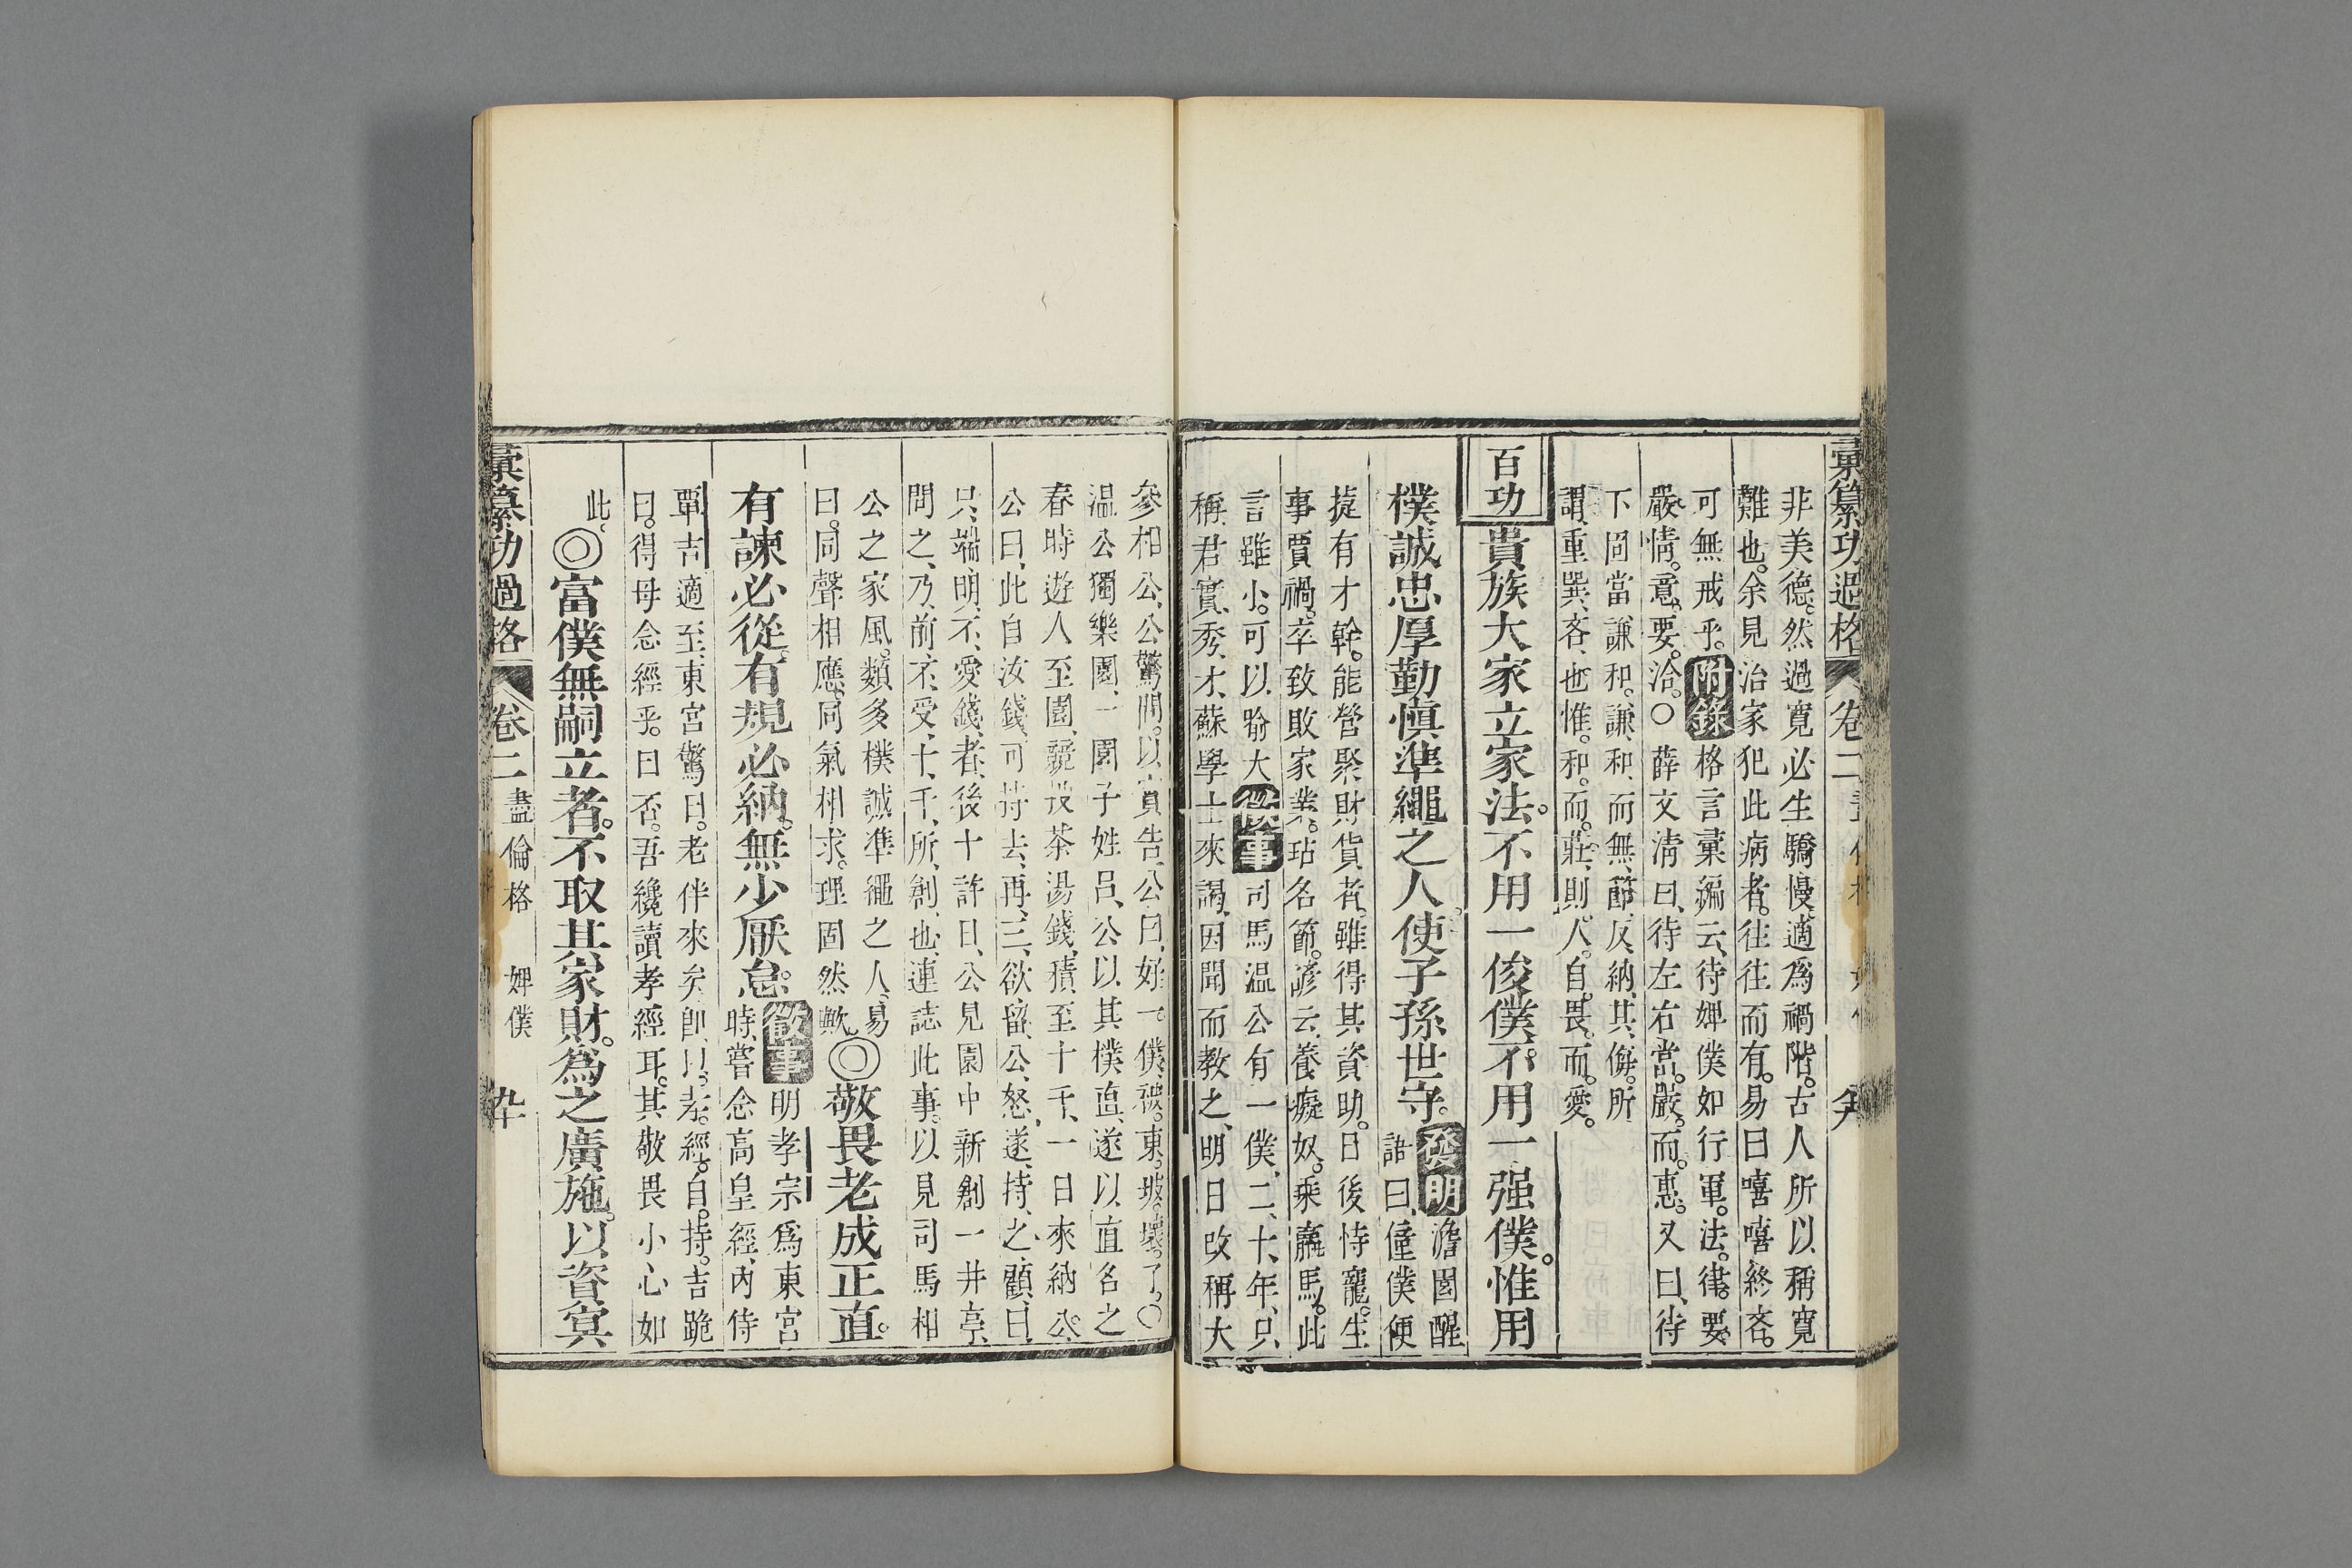 彙纂功過格 卷二
非美德。然過寬必生驕慢。適爲禍階。古人所以稱寬
難也。余見治家犯此病者。往往而有。易曰嘻嘻終吝。
可無戒乎。附錄格言彙編云、待婢僕如行軍。法。律。要。
嚴。情。意。要。洽。○薛文淸曰、待左右當。嚴。而。惠。又曰、待
下固當謙和。謙和而無節、反納其侮。所
謂重巽吝也。惟。和。而。莊、則人。自。畏。而。愛。
百功 貴族大家立家法。不用一俊僕。不用一强僕。惟用
樸誠忠厚勤愼準繩之人。使子孫世守。發明 澹園醒
語曰、僮僕便
捷有才幹。能營聚財貨者。雖得其資助。日後恃寵。生
事賈禍。卒致敗家業。玷名節。諺云、養癡奴。乘羸馬。此
言雖小。可以喩大 徵事 司馬溫公有一僕、二十年、只
稱君實秀才、蘇學士來謁、因聞而教之、明日改稱大
參相公、公驚問。以實告、公曰、好一。僕、被。東。坡。壞。了。○
溫公獨樂園一園子姓呂、公以其樸直、遂以直名之
春時遊人至園、競投茶湯錢、積至十千、一日來納公、
公曰、此自汝錢、可持去、再三欲留、公怒、遂持之、顧曰、
只端明不愛錢者、後十許日、公見園中新創一井亭、
問之、乃前不受十千所創也、連誌此事。以見司馬相
公之家風。類多樸誠準繩之人、易
曰。同聲相應。同氣相求。理固然歟 ◎敬畏老成正直。
有諫必從。有規必納。無少厭怠。徵事 明孝宗爲東宮
時、嘗念高皇經、內侍
覃吉適至、東宮驚曰。老伴來矣、卽以。孝。經。自。持。吉跪
曰。得毋念經乎。曰否。吾纔讀孝經耳。其敬畏小心如
此。◎富僕無嗣立者。不取其家財。爲之廣施。以資冥
彙纂功過格 卷二 盡倫格 婢僕